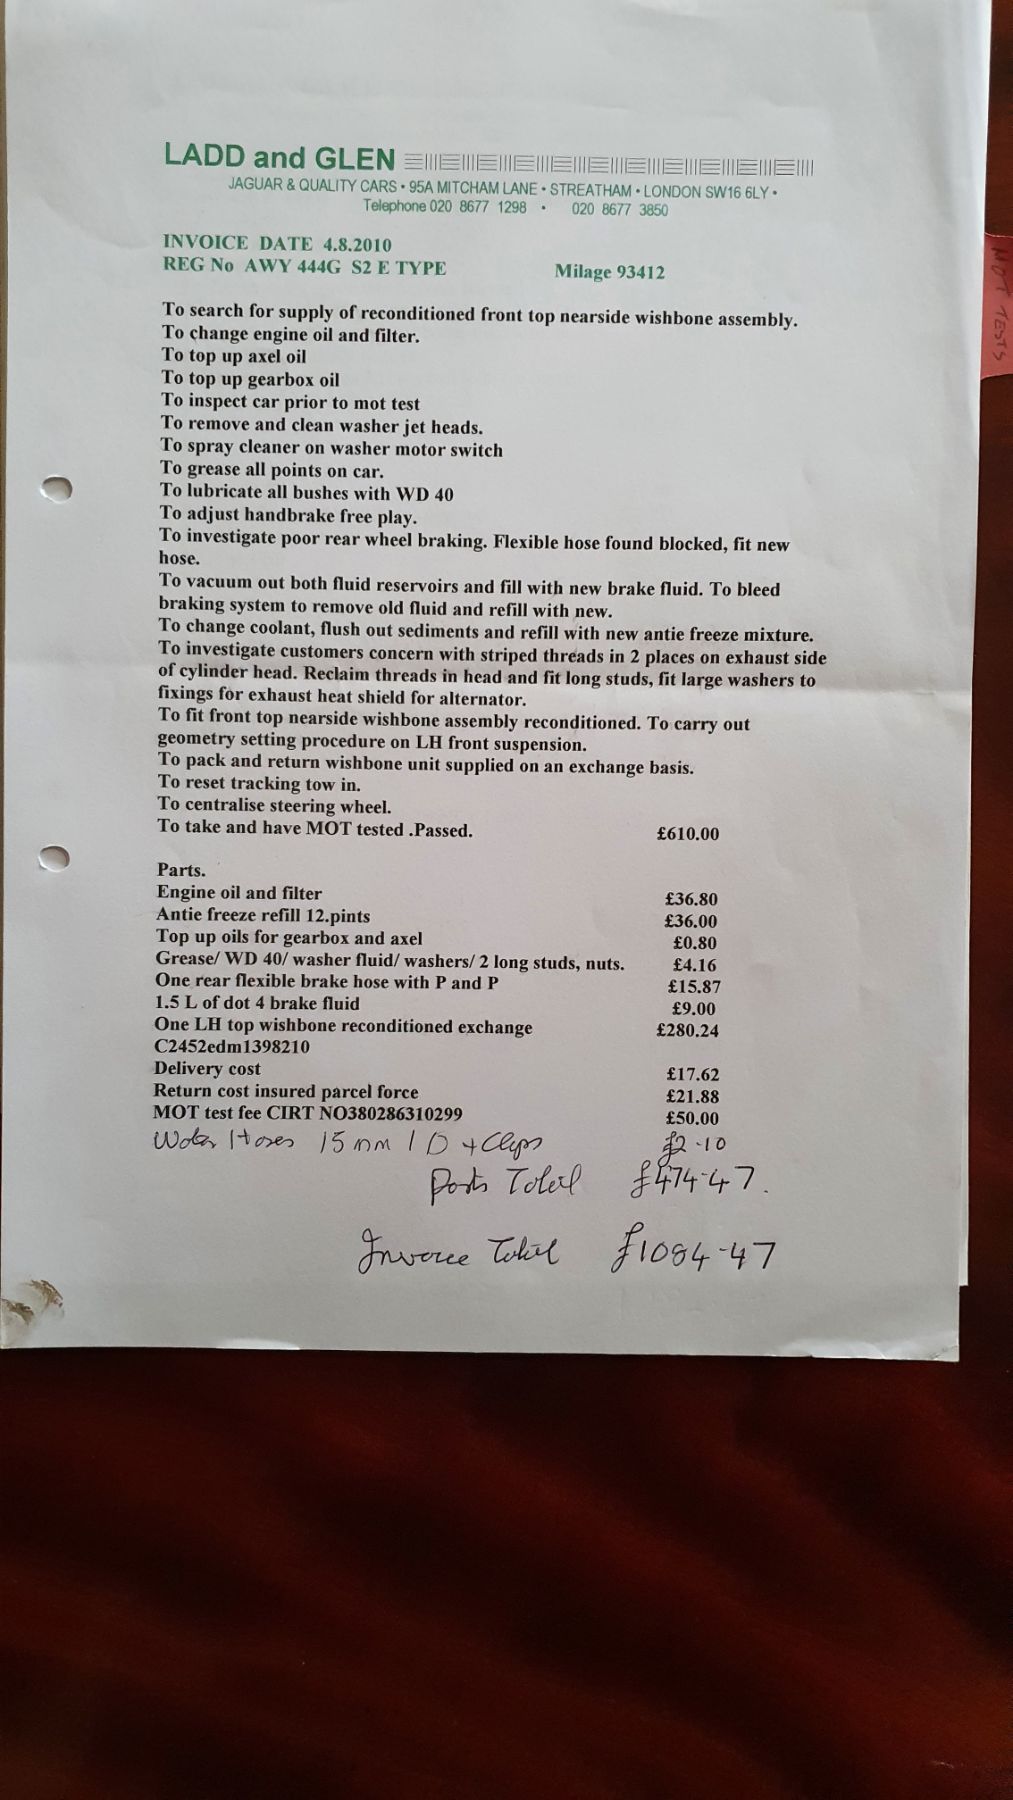 LADD and GLEN
JAGUAR & QUALITY CARS • 95A MITCHAM LANE • STREATHAM • LONDON SW16 6LY •
Telephone 020 8677 1298 • 020 8677 3850
INVOICE DATE 4.8.2010
REG No AWY 444G S2 E TYPE Milage 93412
MOT TESTS
To search for supply of reconditioned front top nearside wishbone assembly.
To change engine oil and filter.
To top up axel oil
To top up gearbox oil
To inspect car prior to mot test
To remove and clean washer jet heads.
To spray cleaner on washer motor switch
To grease all points on car.
To lubricate all bushes with WD 40
To adjust handbrake free play.
To investigate poor rear wheel braking. Flexible hose found blocked, fit new
hose.
To vacuum out both fluid reservoirs and fill with new brake fluid. To bleed
braking system to remove old fluid and refill with new.
To change coolant, flush out sediments and refill with new antie freeze mixture.
To investigate customers concern with striped threads in 2 places on exhaust side
of cylinder head. Reclaim threads in head and fit long studs, fit large washers to
fixings for exhaust heat shield for alternator.
To fit front top nearside wishbone assembly reconditioned. To carry out
geometry setting procedure on LH front suspension.
To pack and return wishbone unit supplied on an exchange basis.
To reset tracking tow in.
To centralise steering wheel.
To take and have MOT tested .Passed. £610.00
Parts.
Engine oil and filter £36.80
Antie freeze refill 12.pints £36.00
Top up oils for gearbox and axel £0.80
Grease/ WD 40/ washer fluid/ washers/ 2 long studs, nuts. £4.16
One rear flexible brake hose with P and P £15.87
1.5 L of dot 4 brake fluid £9.00
One LH top wishbone reconditioned exchange £280.24
C2452edm1398210
Delivery cost £17.62
Return cost insured parcel force £21.88
MOT test fee CIRT NO380286310299 £50.00
Water Hoses 15mm ID + Clips £2-10
Parts Total £474-47.
Invoice Total £1084-47